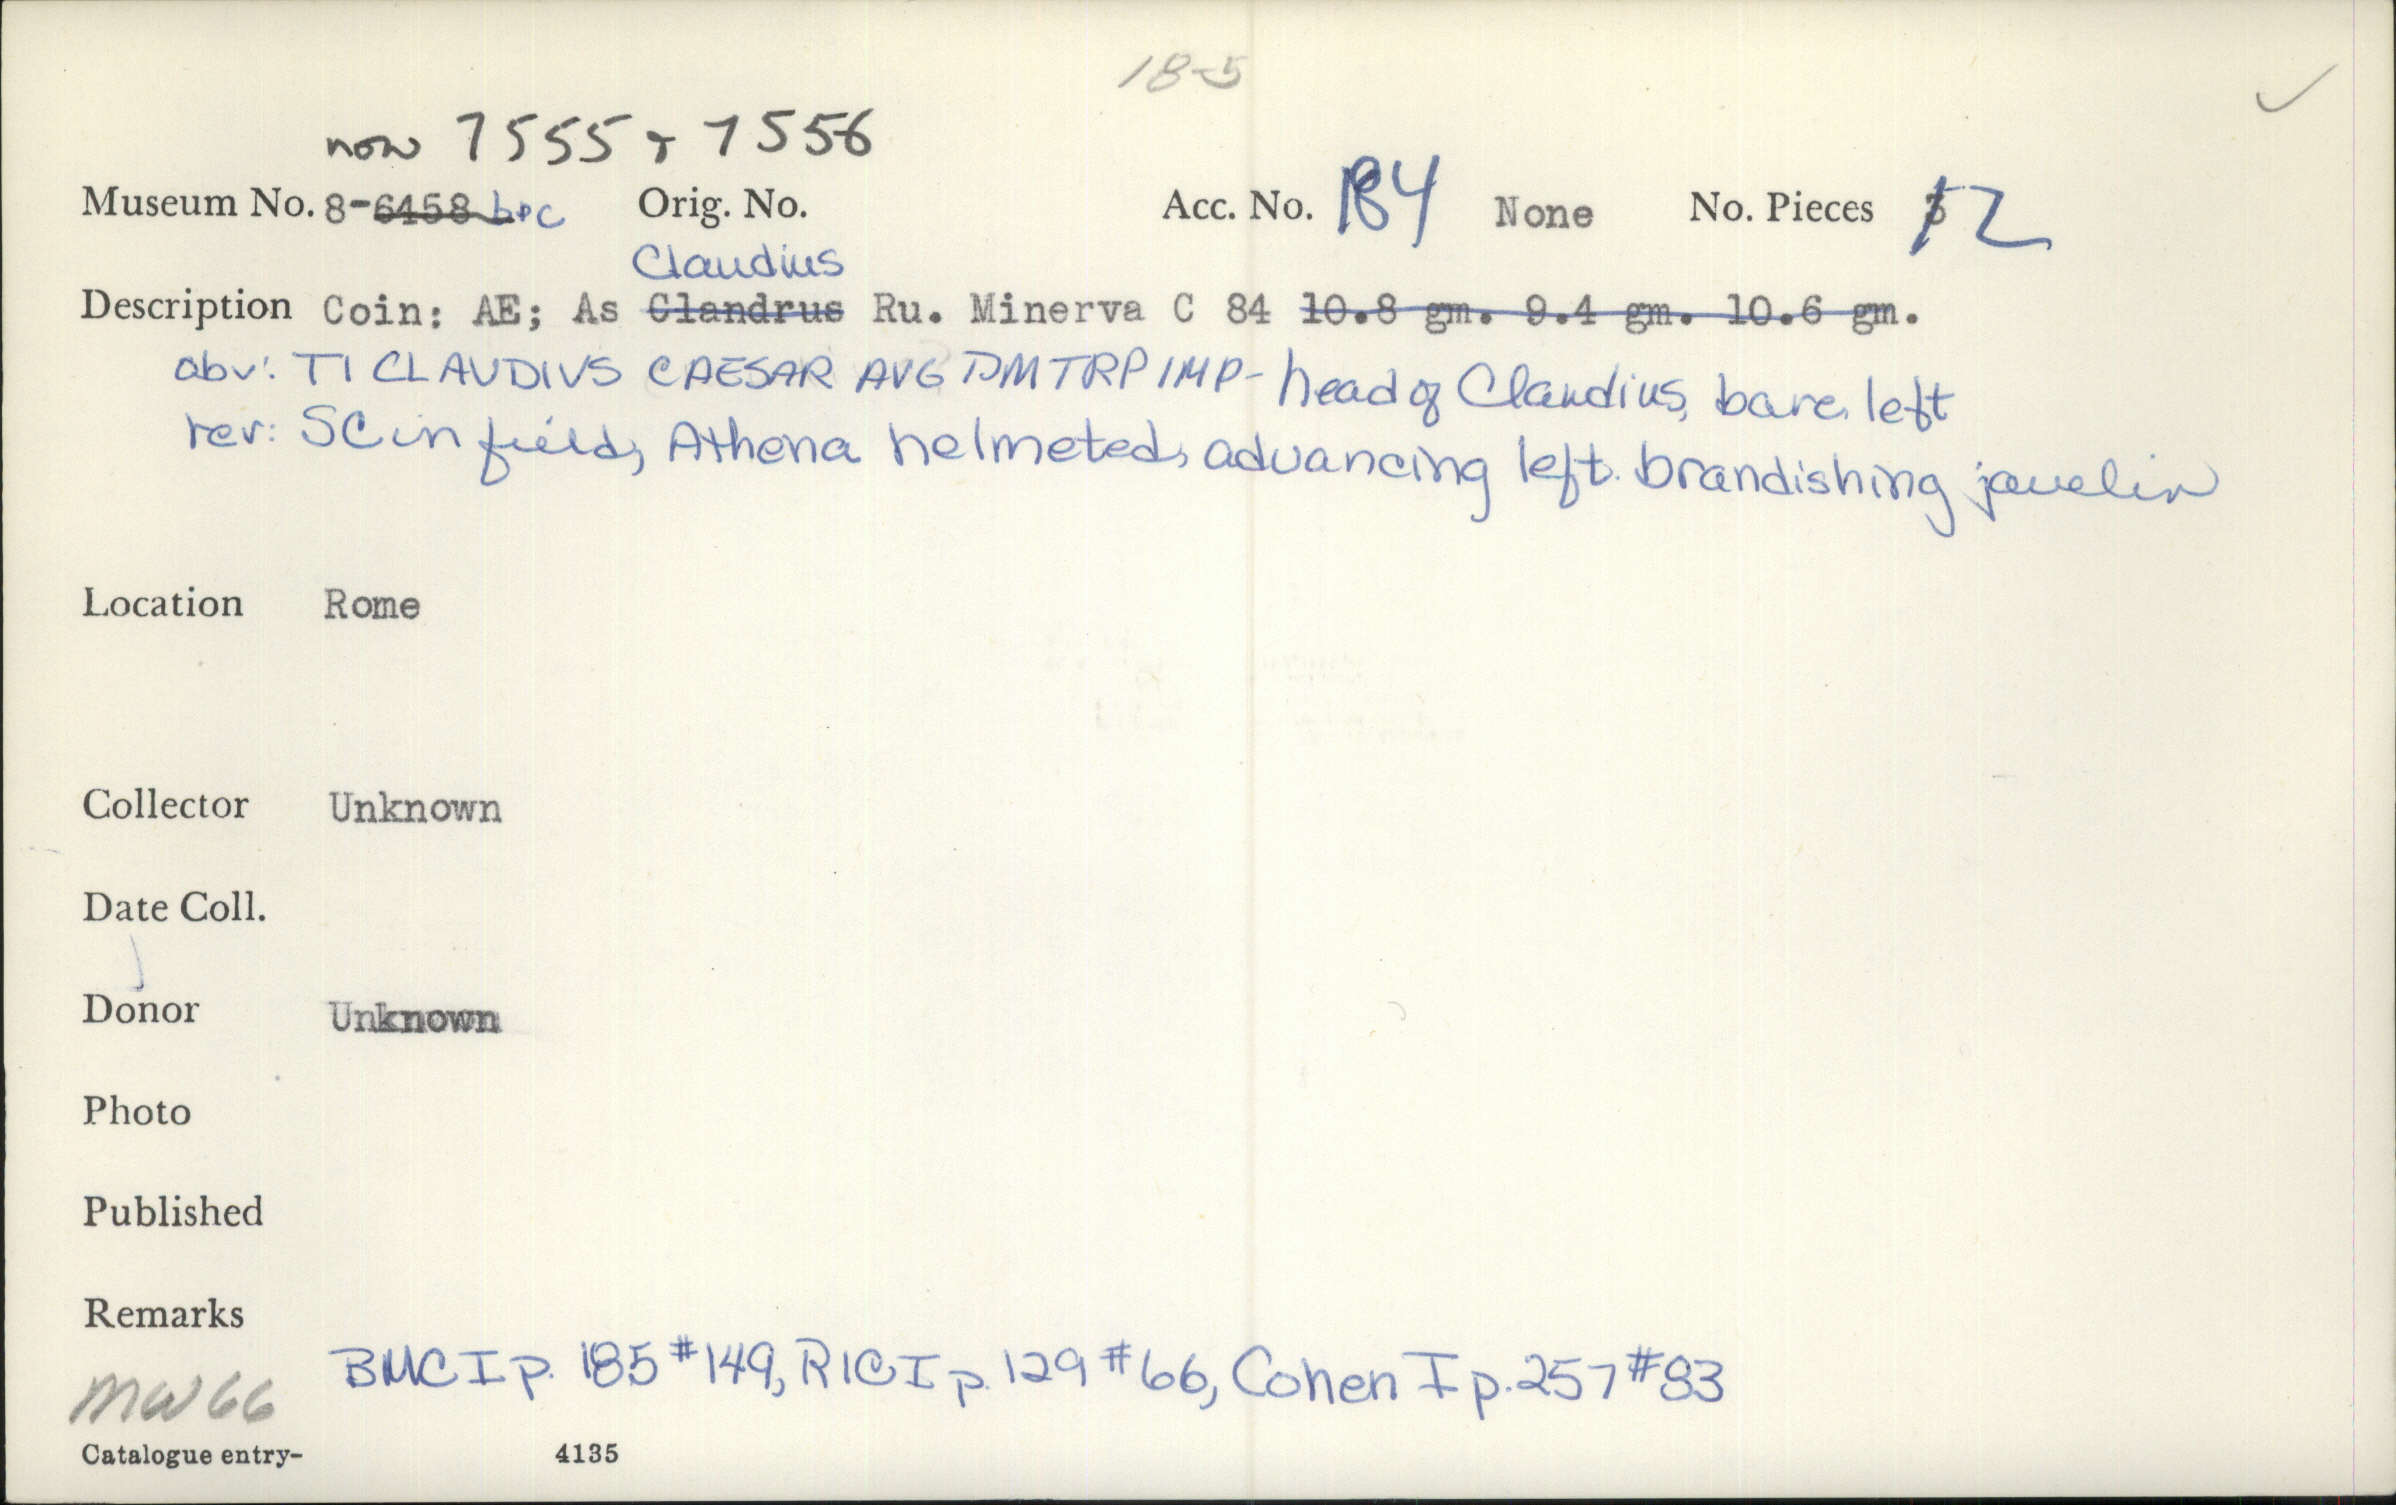 18-5
now 7555 + 7556
Museum No. 8-6458 b+c Orig. No. Acc. No. 184 None No. Pieces 2
Claudius
Description Coin: AE; As Clandrus Ru. Minerva C 84 10.8 gm. 9.4 gm. 10.6 gm.
obv: TI CLAUDIVS CAESAR AVG PM TRP IMP - head of Claudius, bare, left
rev: SC in field, Athena helmeted, advancing left. brandishing javelin
Location Rome
Collector Unknown
Date Coll.
Donor Unknown
Photo
Published
Remarks
BMC I p. 185 #149, RIC I p. 129 #66, Cohen I p. 257 #83
MW66
Catalogue entry- 4135